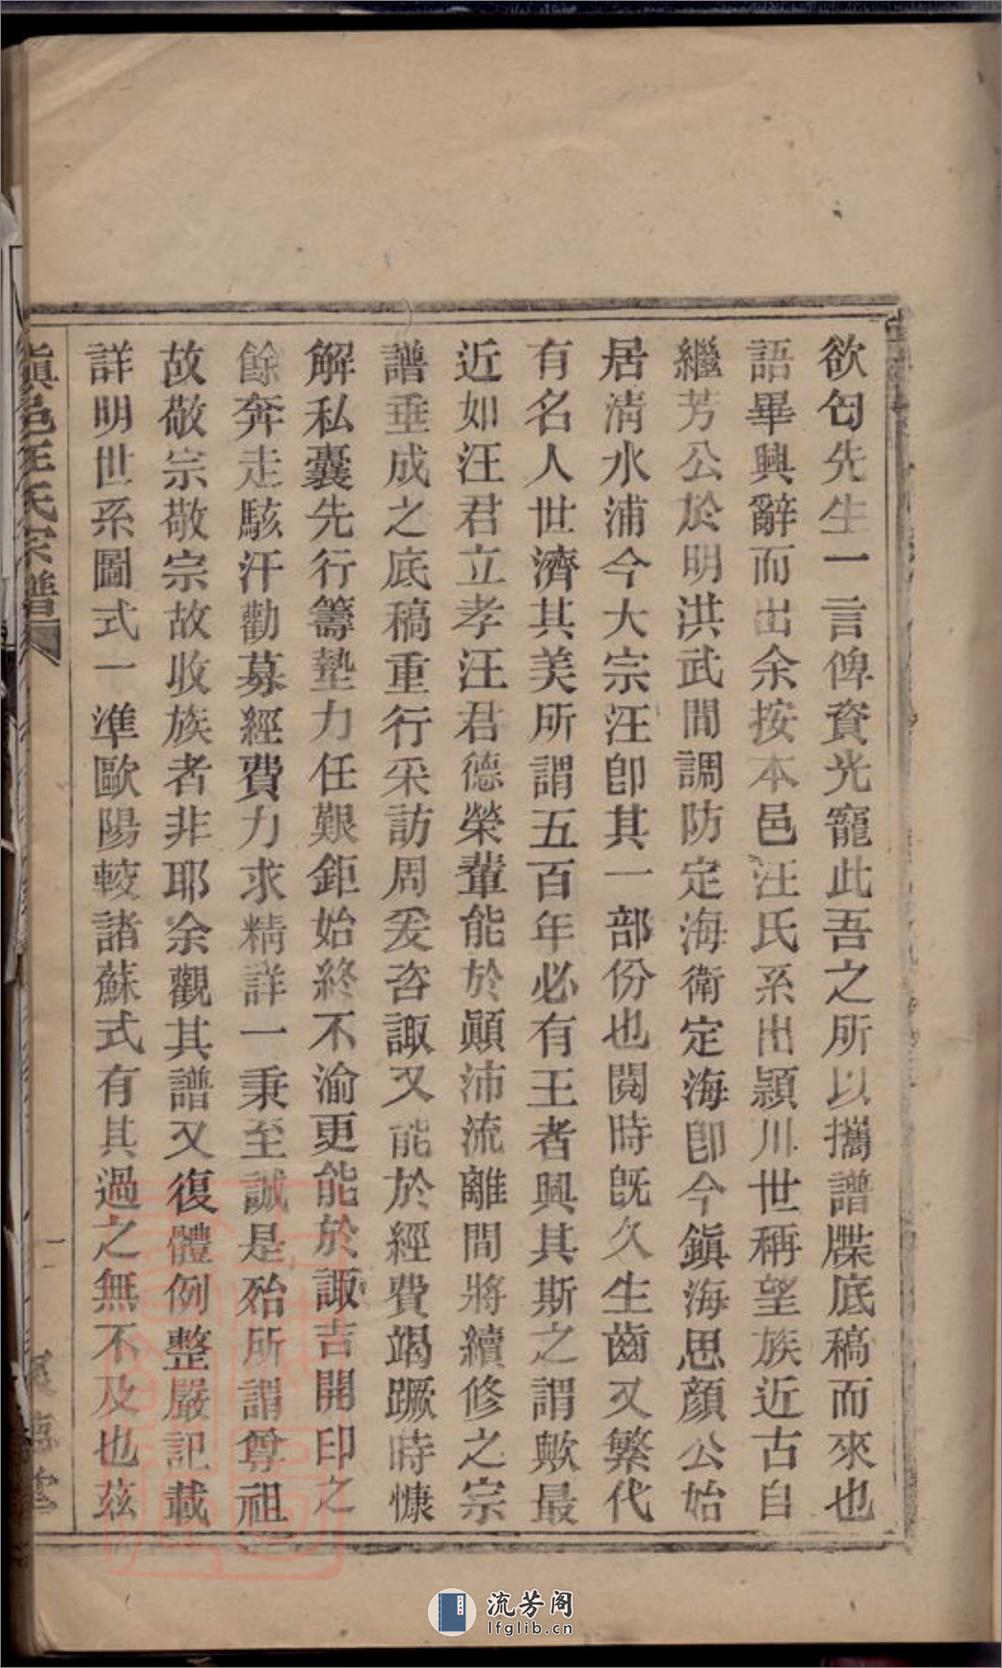 欲匄先生一言俾資光寵此吾之所以攜譜牒底稿而來也
語畢興辭而出余按本邑汪氏系出潁川世稱望族近古自
繼芳公於明洪武間調防定海衛定海卽今鎭海思顏公始
居淸水浦今大宗汪卽其一部份也閱時旣久生齒又繁代
有名人世濟其美所謂五百年必有王者興其斯之謂歟最
近如汪君立孝汪君德榮輩能於顚沛流離間將續修之宗
譜垂成之底稿重行采訪周爰咨諏又能於經費竭蹶時慷
解私囊先行籌墊力任艱鉅始終不渝更能於諏吉開印之
餘奔走駭汗勸募經費力求精詳一秉至誠是殆所謂尊祖
故敬宗敬宗故收族者非耶余觀其譜又復體例整嚴記載
詳明世系圖式一準歐陽較諸蘇式有其過之無不及也茲
鎭邑汪氏宗譜
流芳阁
lfglib.cn